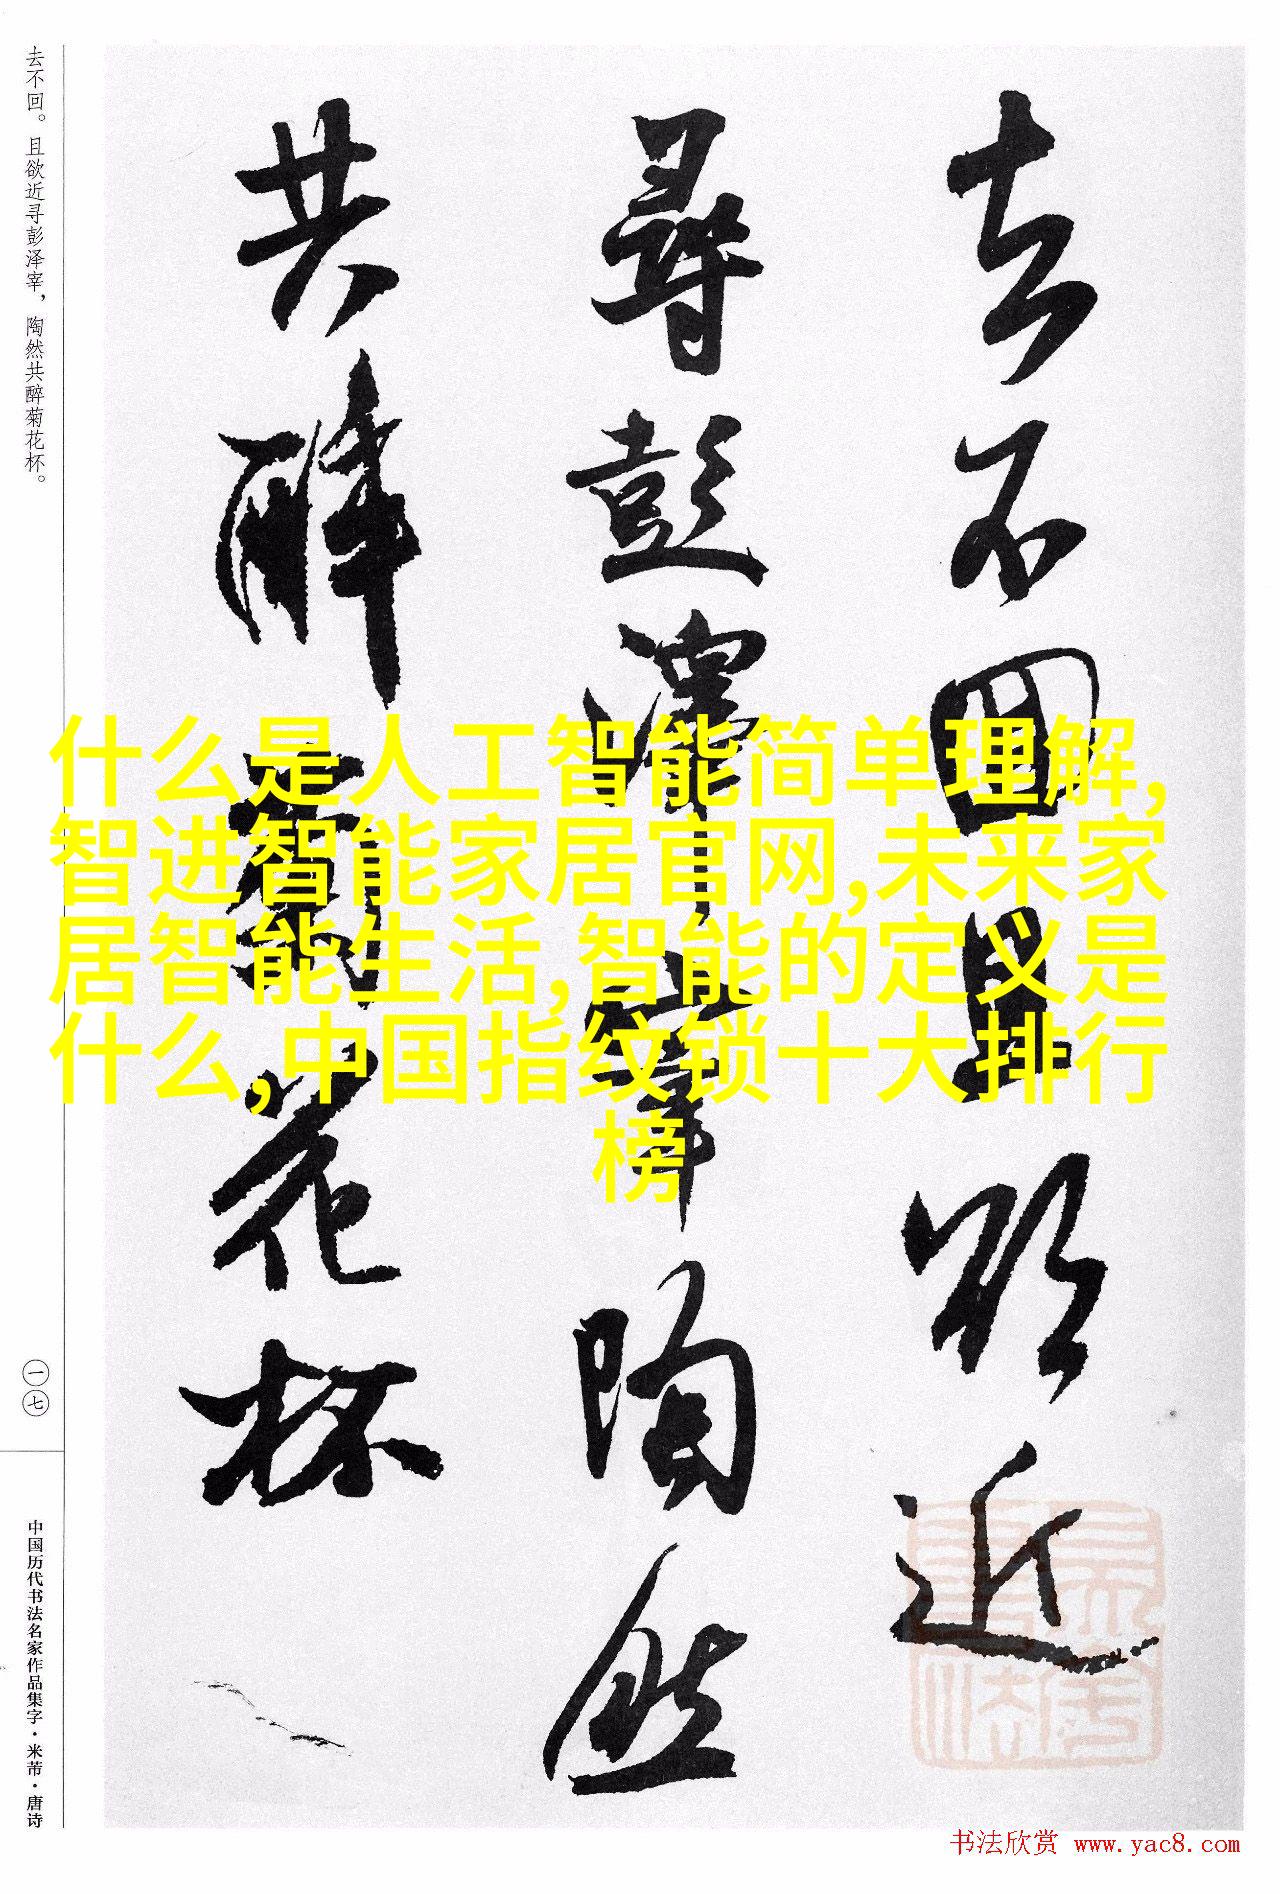 去不回且欲近
尋彭澤宰陶然
共醉菊花杯
什么是人工智能简单理解,
智进智能家居官网,未来家
居智能生活,智能的定义是
什么,中国指纹锁十大排行
榜
去不回。且欲近寻彭泽宰，陶然共醉菊花杯。
一七
中国历代书法名家作品集字·米芾·唐诗
书法欣赏 www.yac8.com